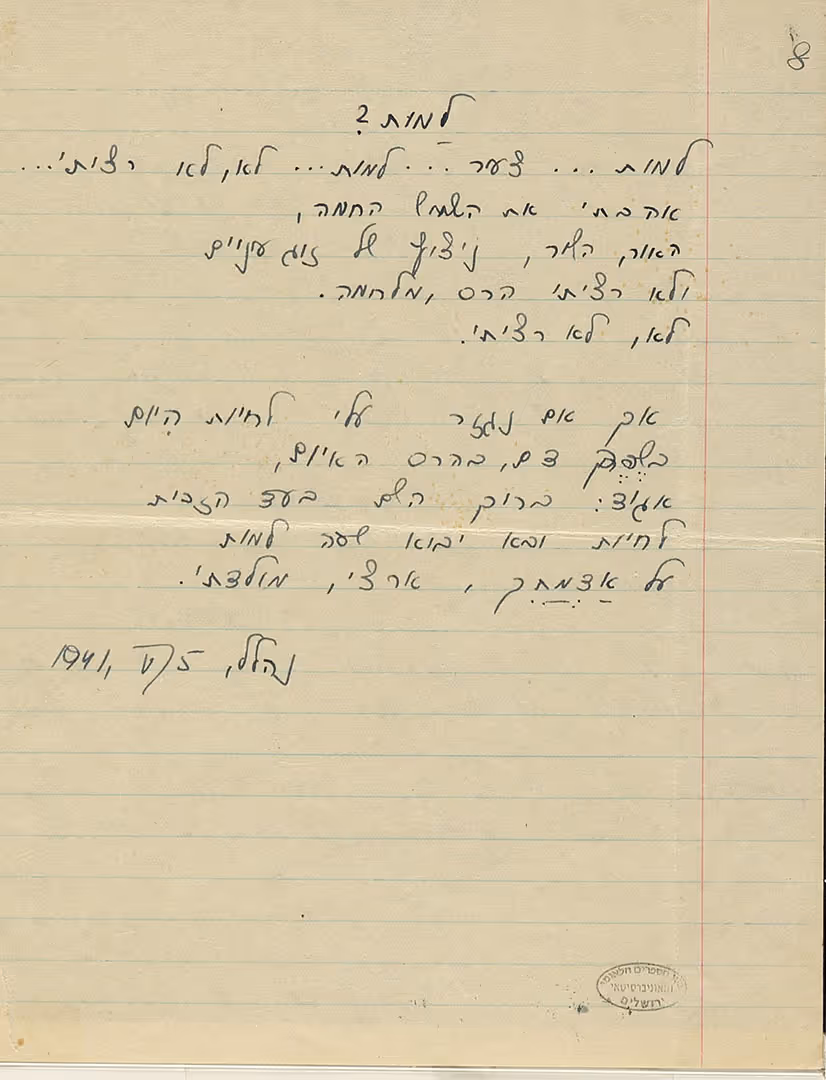 8
למות?
למות... צעיר... למות... לא, לא רציתי...
אהבתי את השמש החמה,
האור, השיר, ניצוץ של זוג עיניים
ולא רציתי הרס, מלחמה.
לא, לא רציתי.
אך אם נגזר עלי לחיות היום
בשפך דם, בהרס האיום,
אגיד: ברוך השם בעד הזכות
לחיות ובא יבוא שעה למות
על אדמתך, ארצי, מולדתי.
נהלל, 5/V 1941,
בית הספרים הלאומי
והאוניברסיטאי
ירושלים